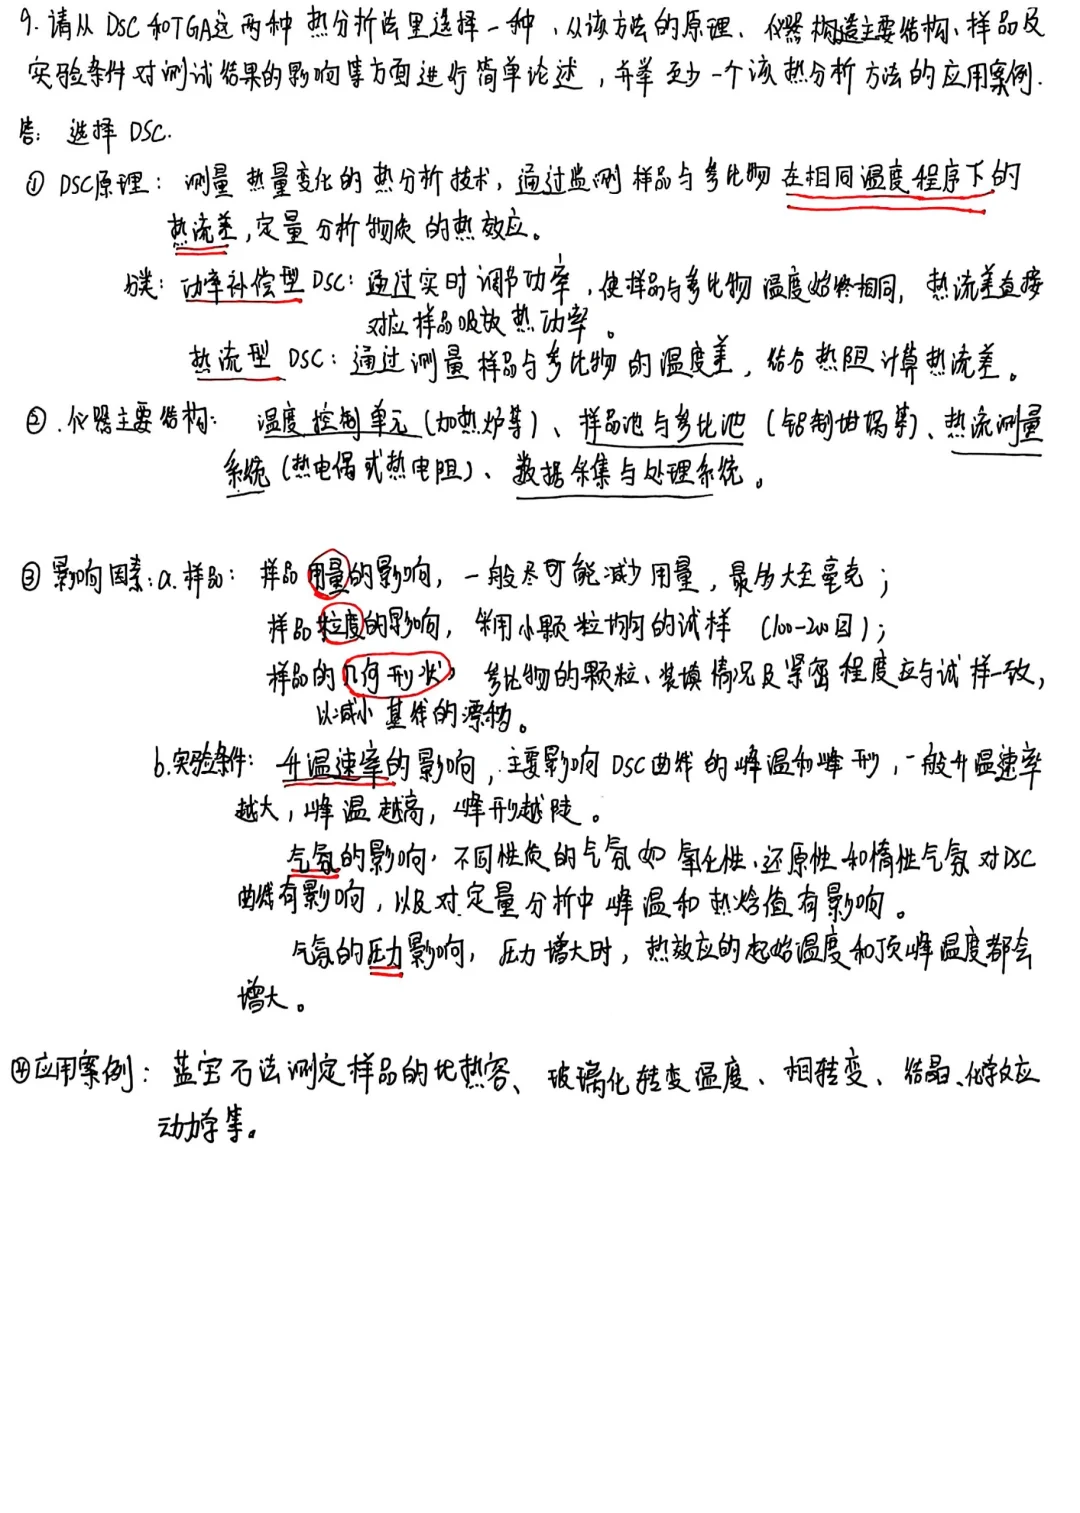 9. 请从 DSC 和TGA这两种 热分析法里选择一种，从该方法的原理、仪器构造主要结构、样品及
实验条件对测试结果的影响等方面进行简单论述，并举至少一个该热分析方法的应用案例.
答：选择 DSC.
① DSC原理：测量热量变化的热分析技术，通过监测样品与参比物在相同温度程序下的
热流差，定量分析物质的热效应。
分类：功率补偿型 DSC：通过实时调节功率，使样品与参比物温度始终相同，热流差直接
对应样品吸放热功率。
热流型 DSC：通过测量样品与参比物的温度差，结合热阻计算热流差。
② .仪器主要结构：温度控制单元（加热炉等）、样品池与参比池（铝制坩埚等）、热流测量
系统（热电偶或热电阻）、数据采集与处理系统。
③ 影响因素：a.样品：样品用量的影响，一般尽可能减少用量，最多大至毫克；
样品粒度的影响，采用小颗粒均匀的试样（100-200目）；
样品的几何形状，参比物的颗粒、装填情况及紧密程度应与试样一致，
以减小基线的漂移。
b.实验条件：升温速率的影响，主要影响 DSC曲线的峰温和峰形，一般升温速率
越大，峰温越高，峰形越陡。
气氛的影响，不同性质的气氛如氧化性、还原性和惰性气氛对DSC
曲线有影响，以及对定量分析中峰温和热焓值有影响。
气氛的压力影响，压力增大时，热效应的起始温度和顶峰温度都会
增大。
④应用案例：蓝宝石法测定样品的比热容、玻璃化转变温度、相转变、结晶、化学反应
动力学等。